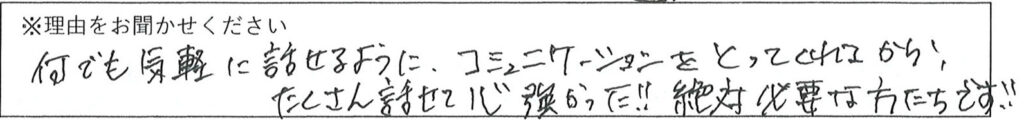 ※理由をお聞かせください
何でも気軽に話せるように、コミュニケーションをとってくれるから、
たくさん話せて心強かった!! 絶対必要な方たちです!!